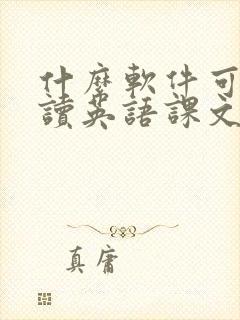 什麼軟件可
讀英語課文
真庸